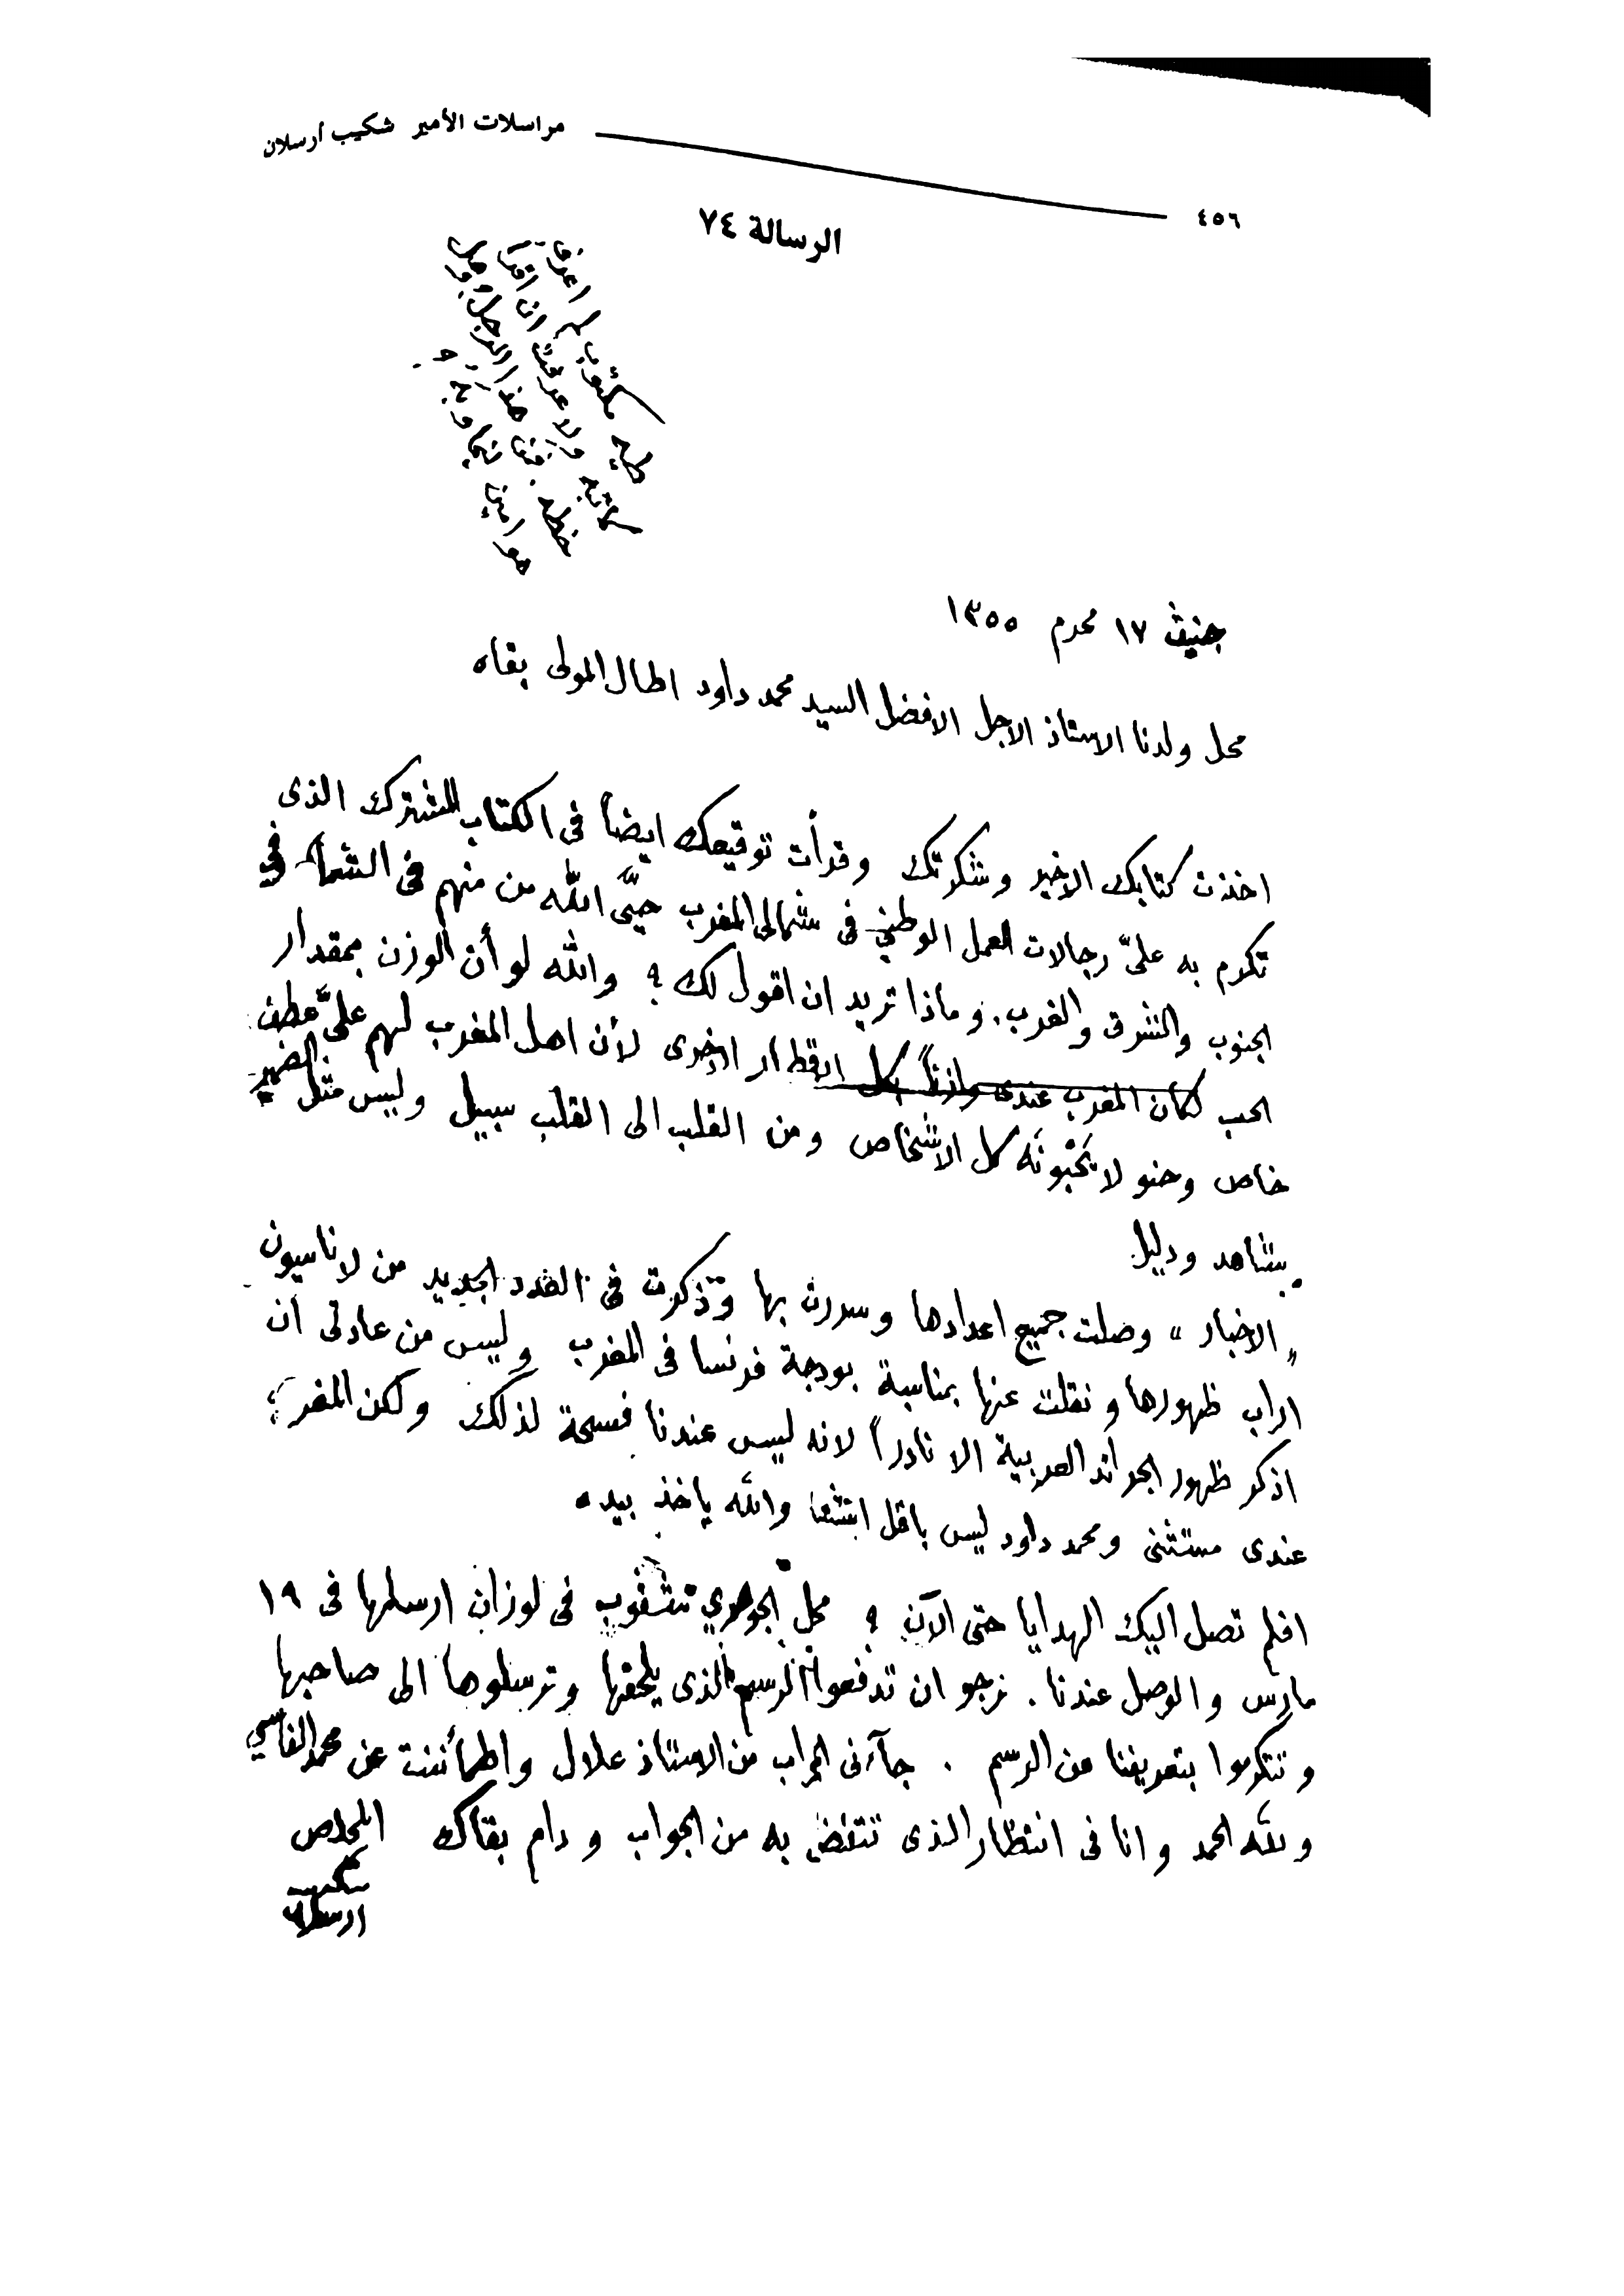 مراسلات الأمير شكيب أرسلان
٤٥٦
الرسالة ٧٤
طيه مكتوب لم اعرف
كاتبه ولا عرفت ان اقرأ
خطه فمن هذا الرجل وهل
هو امين
جنيف ١٧ محرم ١٣٥٥
محل ولدنا الاستاذ الاجل الافضل السيد محمد داود اطال المولى بقاه
اخذت كتابك الاخير وشكرتك وقرأت توقيعك ايضاً فى الكتاب المشترك الذى
تكرم به علىّ رجالات العمل الوطني فى شمالى المغرب حيَّى الله من منهم فى الشمال وفي
الجنوب والشرق والغرب. وماذا تريد ان اقول لك ؟ والله لو أن الوزن بمقدار
الحب لكان المغرب عندى وازناً كل الاقطار الاخرى لأن اهل المغرب لهم علىَّ عطف
خاص وحنو لا يَحْبُونَه كل الاشخاص ومن القلب الى القلب سبيل وليس مثل الضمير
بشاهد ودليل
„ الاخبار „ وصلت جميع اعدادها وسررت بها وذكرت فى العدد الجديد من لاناسيون
اراب ظهورها ونقلت عنها بمناسبة بودجة فرنسا فى المغرب وليس من عادتى أن
اذكر ظهور الجرائد العربية الا نادراً لانه ليس عندنا فسحة لذلك ولكن المغرب
عندى مستثنى ومحمد داود ليس باقل استثناء والله ياخذ بيده
افلم تصل اليك الهدايا حتى الآن ؟ محل الجوهري فى لوزان ارسلها فى ١٩
مارس والوصل عندنا . نرجو ان تدفعوا الرسم الذى يلحقها وترسلوها الى صاحبها
وتتكرموا بتعريفنا عن الرسم . جآءنى الجواب من الاستاذ علال واطمأننت عن محمد الفاسي
ولله الحمد وانا فى انتظار الذى تتفضل به من الجواب ودام بقاك المخلص
شكيب
ارسلان